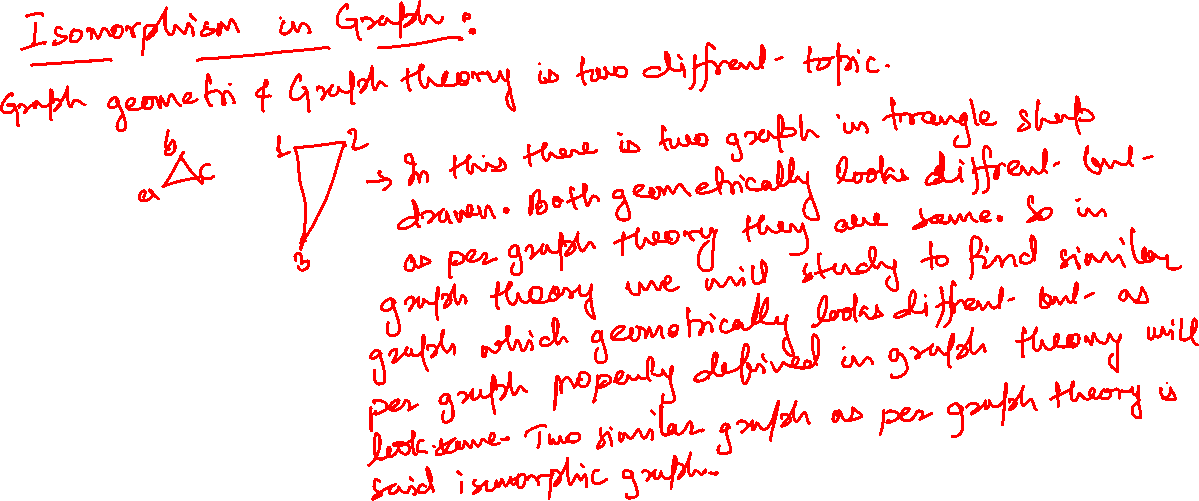 Isomorphism in Graph:
Graph geometri & Graph theory is two diffrent topic.
b
a
c
1
2
3
→ In this there is two graph in trangle shap
drawn. Both geometrically looks diffrent but
as per graph theory they are same. So in
graph theory we will study to find similar
graph which geometrically looks diffrent but as
per graph property defined in graph theory will
look same. Two similar graph as per graph theory is
said isomorphic graph.